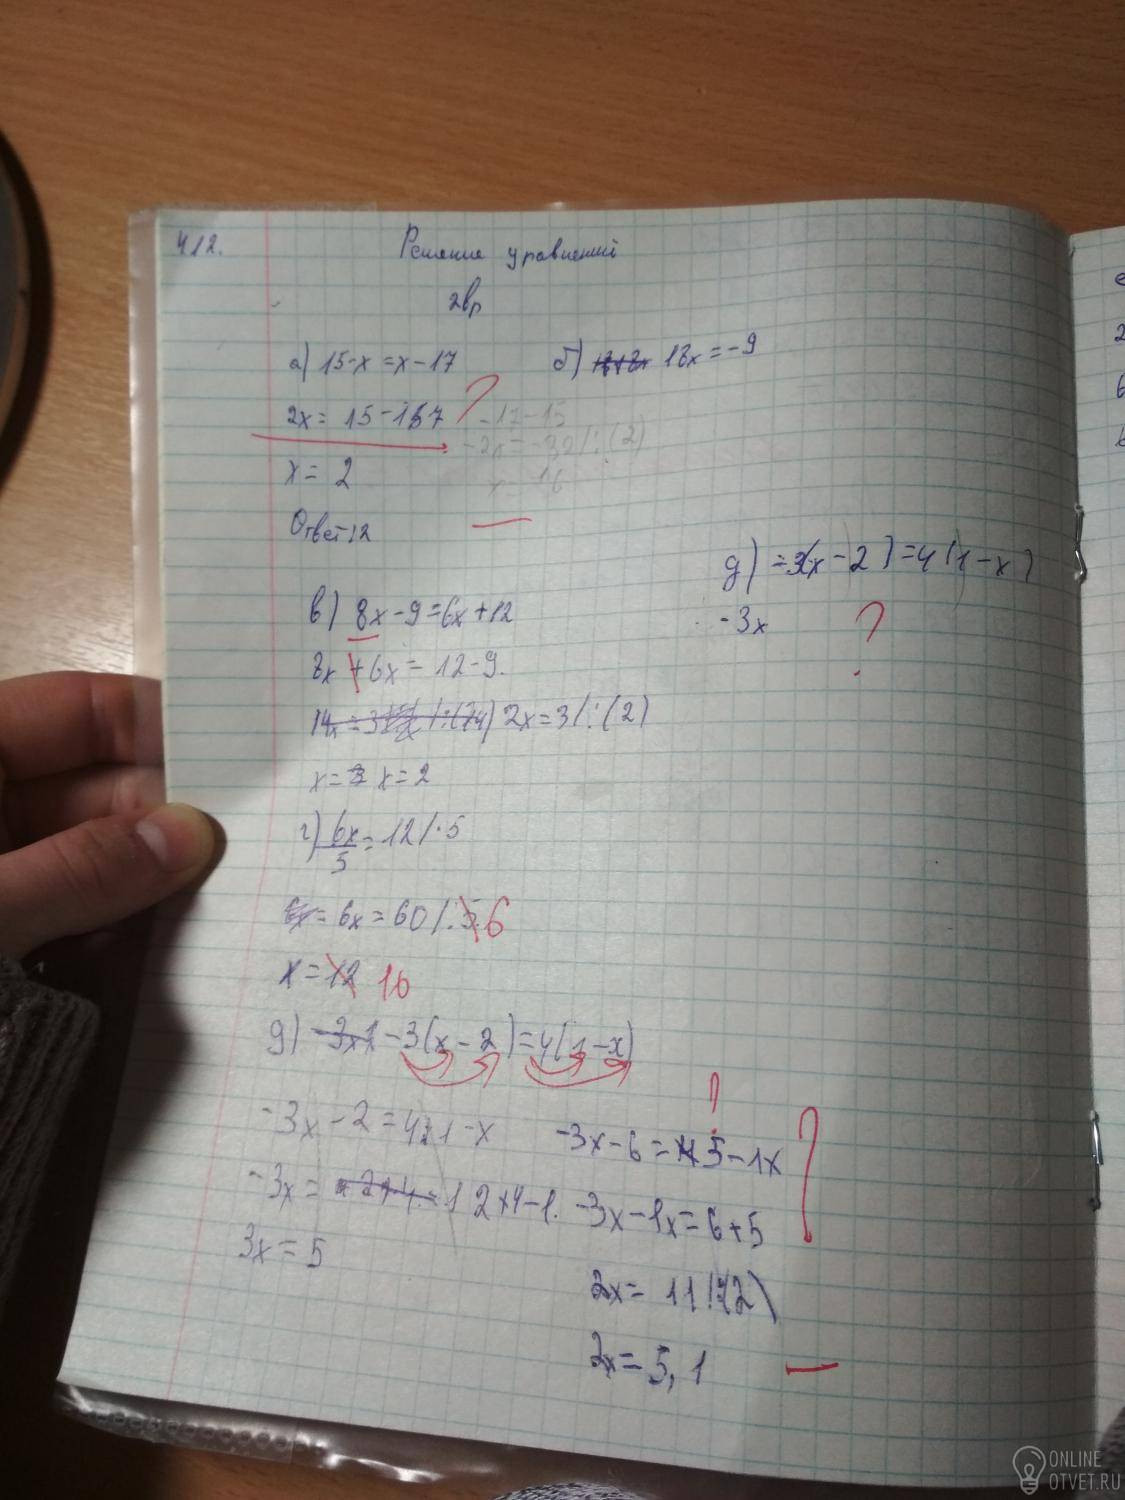 412. Решение уравнений
2вр
а) 15-x=x-17
б) 18x=-9
2x= 15-17
?
-17-15
-2x=-32/:(2)
x= 2
x 16
Ответ:2
д) -3(x-2)=4(1-x)
-3x
?
в) 8x-9=6x+12
8x+6x=12-9.
14x=3 2x=3/:(2)
x= x=2
г) 6x/5=12/·5
6x=60/:5 6
x=12 10
д) -3(x-2)=4(1-x)
?
-3x-2=4 1-x
-3x-6=5-1x
-3x= 2+4-1.
-3x-1x=6+5
3x=5
2x= 11
2x=5,1
ONLINE
OTVET.RU